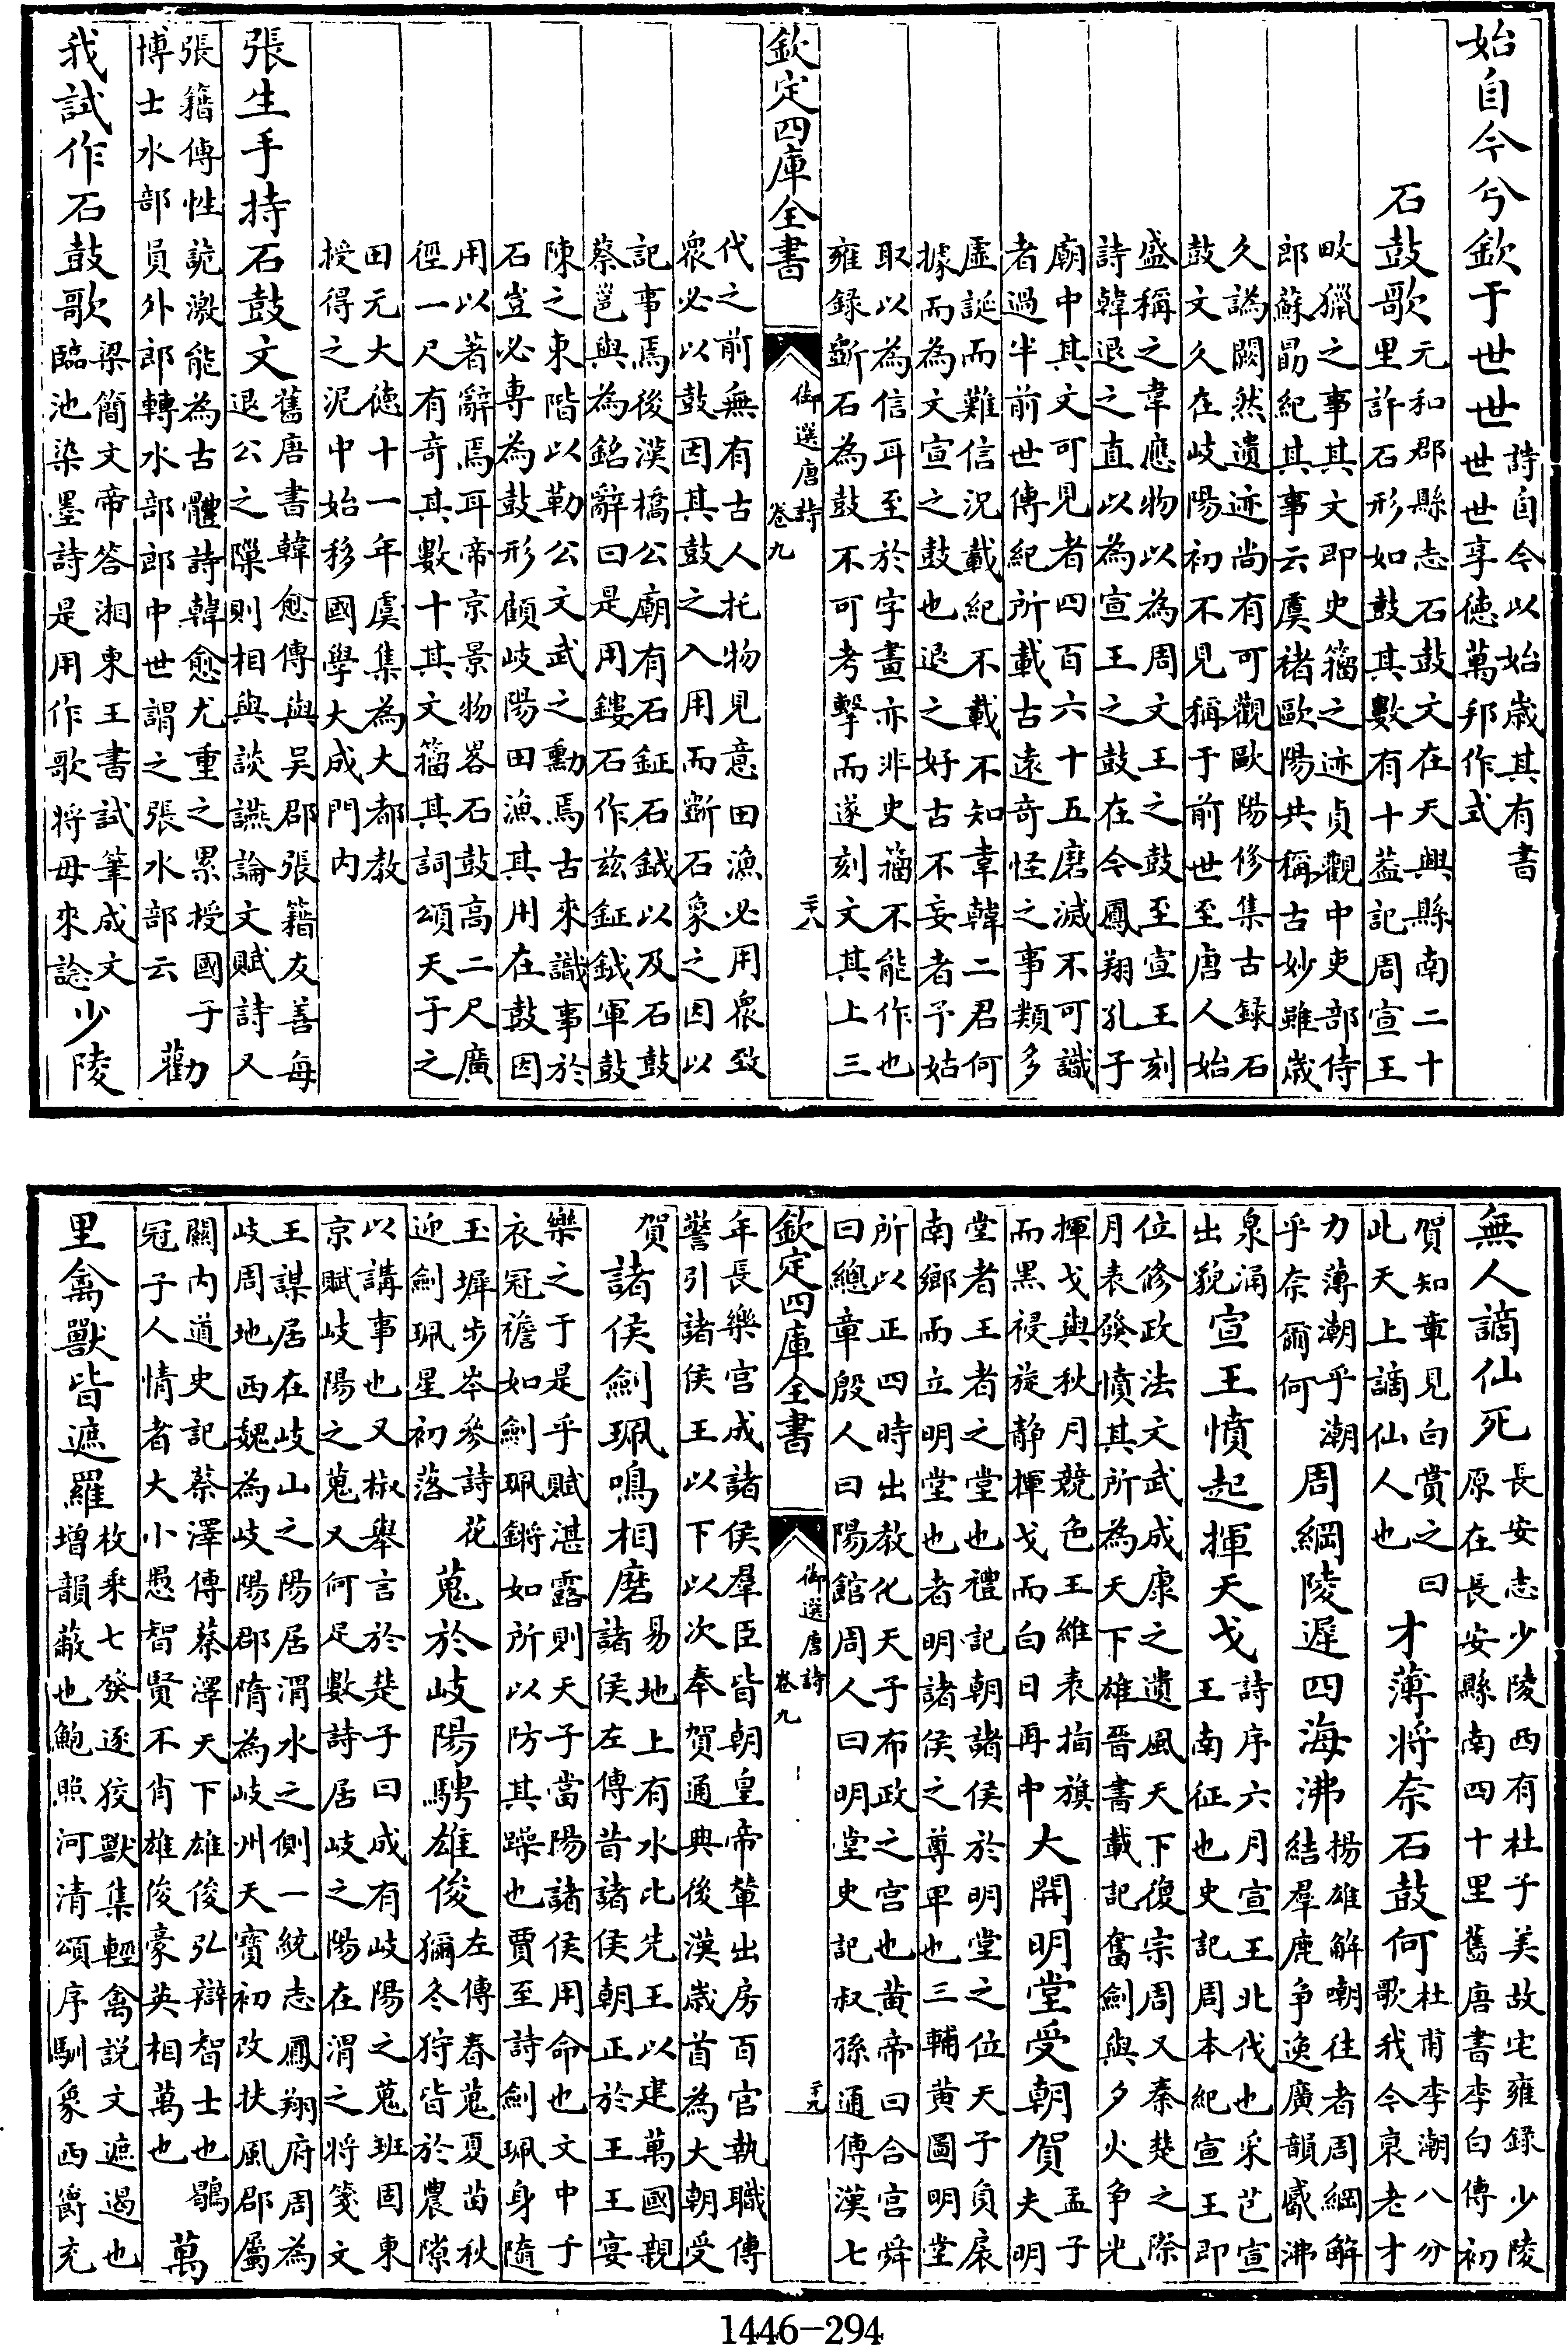 始自今兮欽于世世詩自今以始歲其有書世世享德萬邦作式
石鼓歌元和郡縣志石鼓文在天興縣南二十里許石形如鼓其數有十葢記周宣王
畋獵之事其文即史籀之迹貞觀中吏部侍郎蘇勗紀其事云虞褚歐陽共稱古妙雖歲
久譌闕然遺迹尚有可觀歐陽修集古録石鼓文久在岐陽初不見稱于前世至唐人始
盛稱之韋應物以為周文王之鼓至宣王刻詩韓退之直以為宣王之鼓在今鳳翔孔子
廟中其文可見者四百六十五磨滅不可識者過半前世傳紀所載古遠奇怪之事類多
虛誕而難信況載紀不載不知韋韓二君何據而為文宣之鼓也退之好古不妄者予姑
取以為信耳至於字畫亦非史籀不能作也雍録斷石為鼓不可考擊而遂刻文其上三
欽定四庫全書 御選唐詩 卷九 二十八
代之前無有古人托物見意田漁必用衆致衆必以鼓因其鼓之入用而斷石象之因以
記事焉後漢橋公廟有石鉦石鉞以及石鼓蔡邕與為銘辭曰是用鏤石作兹鉦鉞軍鼓
陳之東階以勒公文武之勳焉古來識事於石豈必專為鼓形顧岐陽田漁其用在鼓因
用以著辭焉耳帝京景物畧石鼓高二尺廣徑一尺有奇其數十其文籀其詞頌天子之
田元大德十一年虞集為大都教授得之泥中始移國學大成門内
張生手持石鼓文舊唐書韓愈傳與吳郡張籍友善每退公之隟則相與談讌論文賦詩又
張籍傳性詭激能為古體詩韓愈尤重之累授國子博士水部員外郎轉水部郎中世謂之張水部云勸
我試作石鼓歌梁簡文帝答湘東王書試筆成文臨池染墨詩是用作歌將母來諗少陵
無人謫仙死長安志少陵西有杜子美故宅雍録少陵原在長安縣南四十里舊唐書李白傳初
賀知章見白賞之曰此天上謫仙人也才薄將奈石鼓何杜甫李潮八分歌我今衰老才
力薄潮乎潮乎奈爾何周綱陵遲四海沸揚雄解嘲往者周綱解結羣鹿爭逸廣韻㵒沸
泉涌出貌宣王憤起揮天戈詩序六月宣王北伐也采芑宣王南征也史記周本紀宣王即
位修政法文武成康之遺風天下復宗周又秦楚之際月表發憤其所為天下雄晉書載記奮劍與夕火爭光
揮戈與秋月競色王維表指旗而黑祲旋静揮戈而白日再中大開明堂受朝賀孟子夫明
堂者王者之堂也禮記朝諸侯於明堂之位天子負扆南鄉而立明堂也者明諸侯之尊卑也三輔黄圖明堂
所以正四時出教化天子布政之宫也黄帝曰合宫舜曰總章殷人曰陽館周人曰明堂史記叔孫通傳漢七
欽定四庫全書 御選唐詩 卷九 二十九
年長樂宫成諸侯羣臣皆朝皇帝輦出房百官執職傳警引諸侯王以下以次奉賀通典後漢歲首為大朝受
賀諸侯劍珮鳴相磨易地上有水比先王以建萬國親諸侯左傳昔諸侯朝正於王王宴
樂之于是乎賦湛露則天子當陽諸侯用命也文中子衣冠襜如劍珮鏘如所以防其躁也賈至詩劍珮身隨
玉墀步岑參詩花迎劍珮星初落蒐於岐陽騁雄俊左傳春蒐夏苗秋獮冬狩皆於農隙
以講事也又椒舉言於楚子曰成有岐陽之蒐班固東京賦岐陽之蒐又何足數詩居岐之陽在渭之將箋文
王謀居在岐山之陽居渭水之側一統志鳳翔府周為岐周地西魏為岐陽郡隋為岐州天寶初改扶風郡屬
關内道史記蔡澤傳蔡澤天下雄俊弘辯智士也鶡冠子人情者大小愚智賢不肖雄俊豪英相萬也萬
里禽獸皆遮羅枚乘七發逐狡獸集輕禽説文遮遏也增韻蔽也鮑照河清頌序馴象西爵充
1446-294